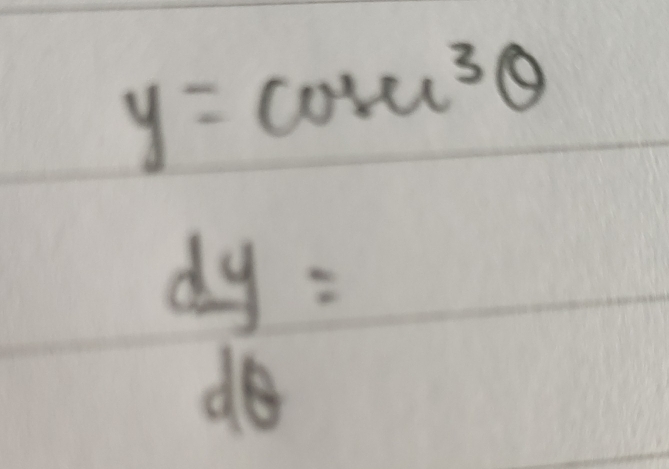 y = cosec³θ
dy =
dθ